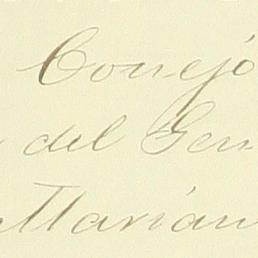 Consejó
del Gen
Marian